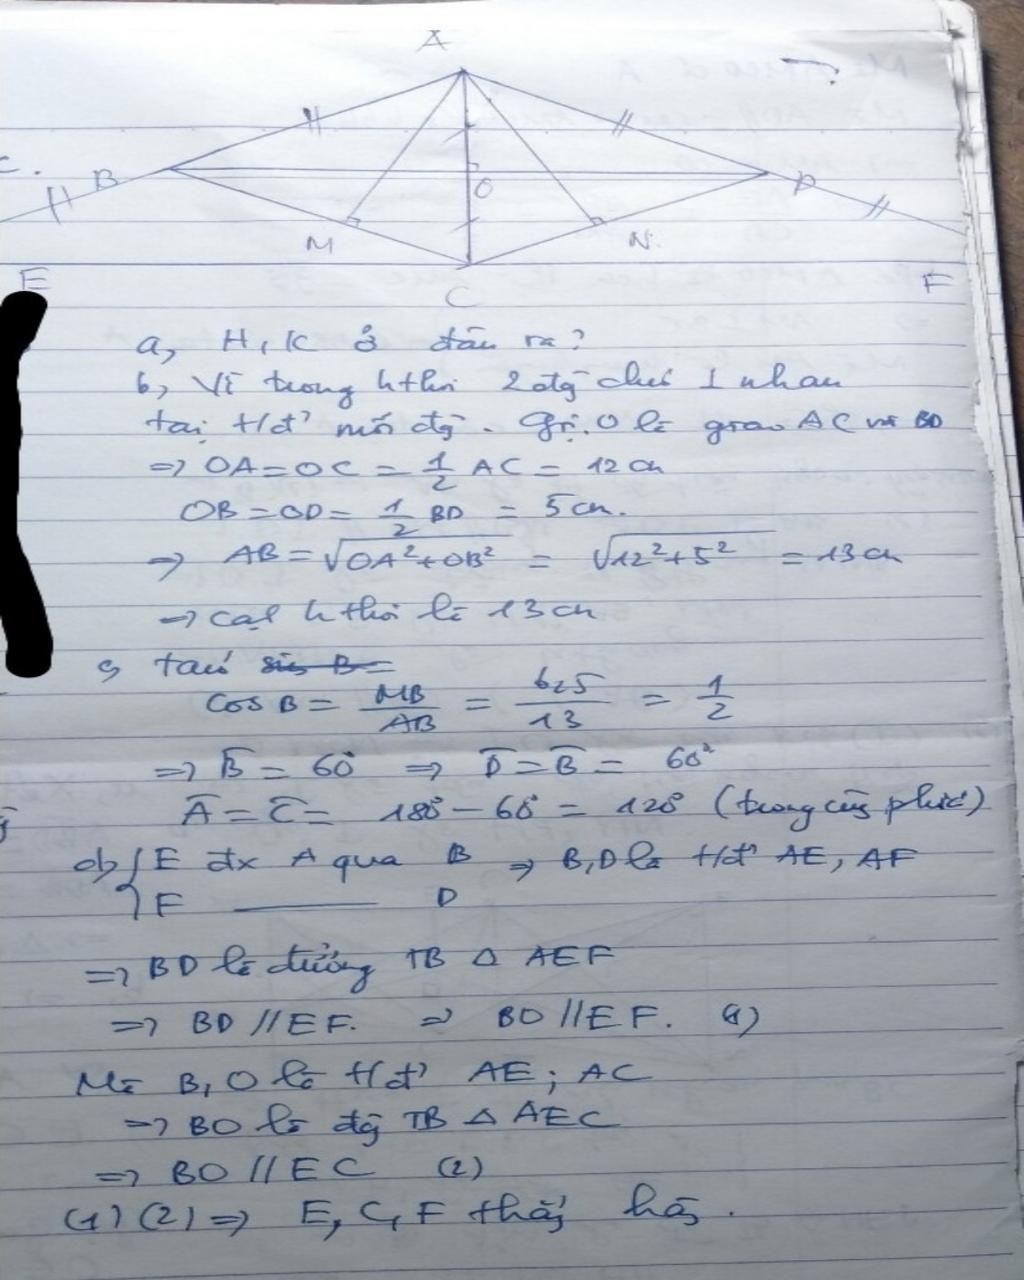 A
B
O
D
M
N
E
C
F
a, H, K ở đâu ra?
b, Vì trong hthoi 2 đg chéo ⊥ nhau
tại t/đ' mỗi đg. Gọi O là giao AC và BD
=> OA = OC = 1/2 AC = 12 cm
OB = OD = 1/2 BD = 5 cm.
=> AB = √OA² + OB² = √12² + 5² = 13 cm
=> cạh hthoi là 13 cm
c, 
cos B = MB/AB = 6,5/13 = 1/2
=> B = 60° => D = B = 60°
A = C = 180° - 60° = 120° (trong cùng phía)
d, { E đx A qua B => B, D là t/đ' AE, AF
F ——— D
=> BD là đường TB Δ AEF
=> BD // EF. => BO // EF. (1)
Mà B, O là t/đ' AE; AC
=> BO là đg TB Δ AEC
=> BO // EC (2)
(1) (2) => E, C, F thẳg hàg.